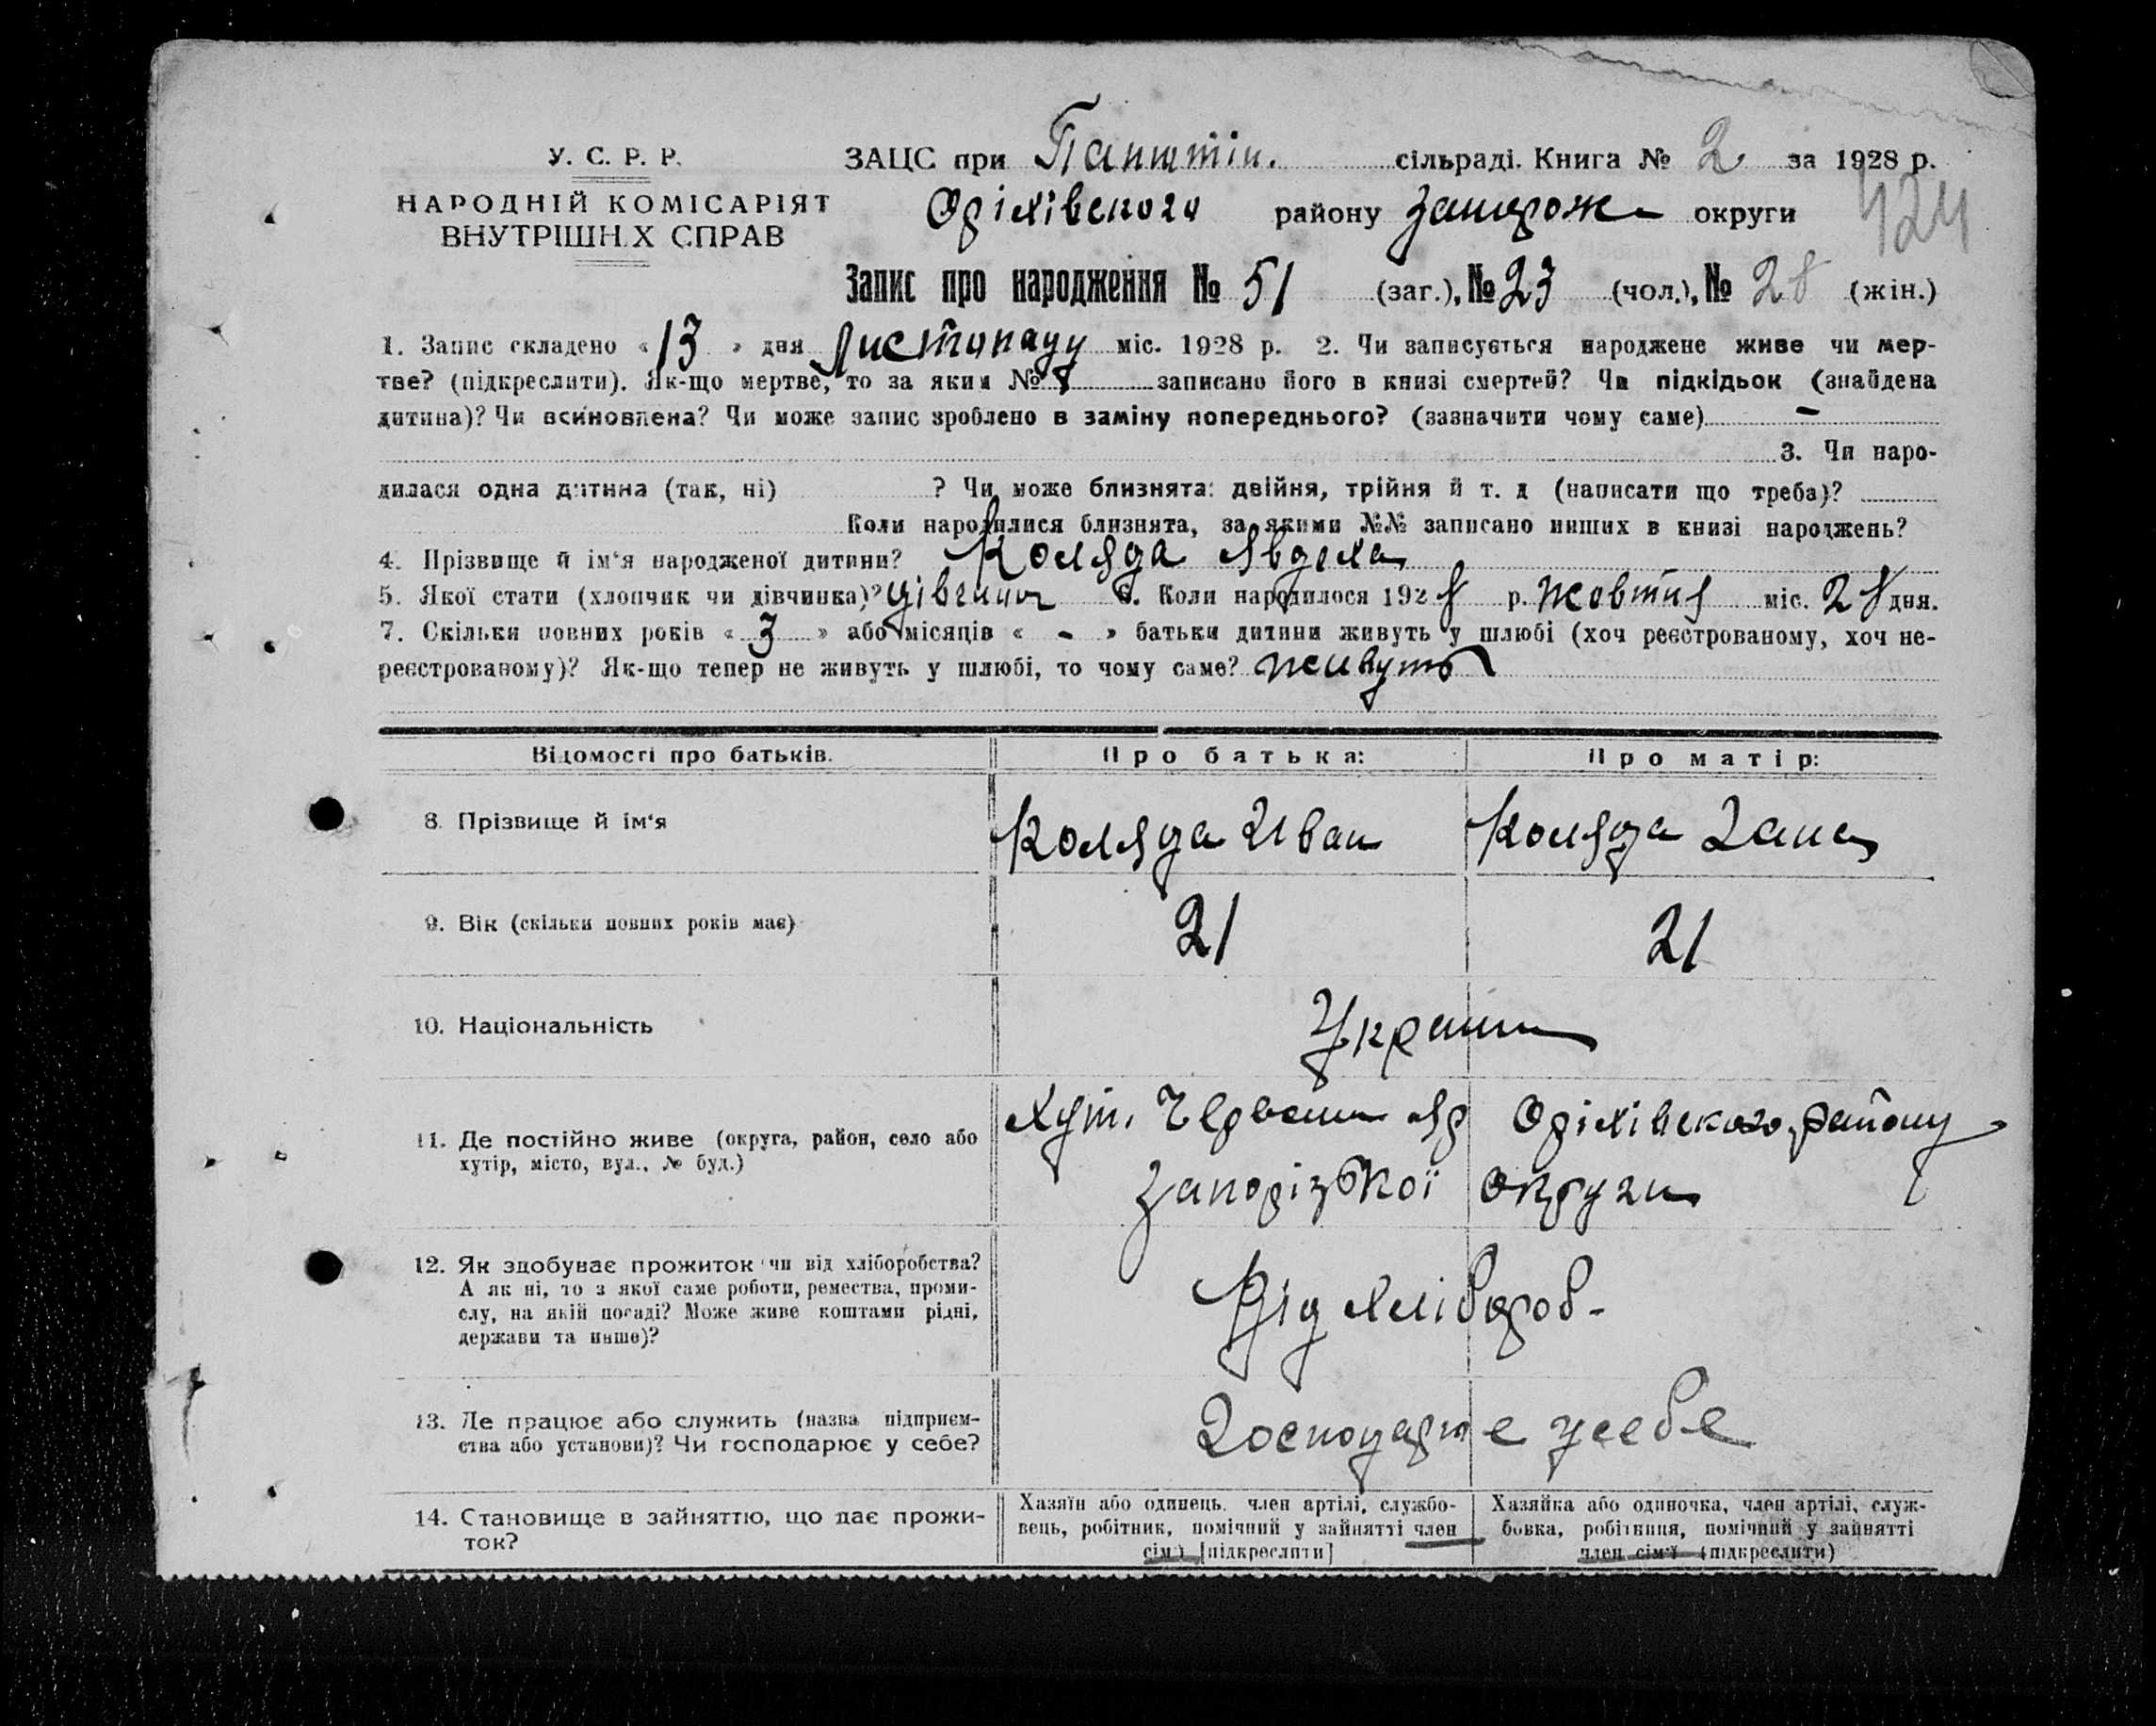 У. С. Р. Р.
НАРОДНІЙ КОМІСАРІЯТ
ВНУТРІШНІХ СПРАВ
ЗАЦС при сільраді. Книга № 2 за 1928 р.
Оріхівського району Запорож округи
424
Запис про народження № 51 (заг.), № 23 (чол.), № 28 (жін.)
1. Запис складено « 13 » дня Листопаду міс. 1928 р. 2. Чи записується народжене живе чи мер-
тве? (підкреслити). Як-що мертве, то за яким № записано його в книзі смертей? Чи підкідьок (знайдена
дитина)? Чи всиновлена? Чи може запис зроблено в заміну попереднього? (зазначити чому саме) -
3. Чи наро-
дилася одна дитина (так, ні) ? Чи може близнята: двійня, трійня й т. д (написати що треба)?
Коли народилися близнята, за якими №№ записано инших в книзі народжень?
4. Прізвище й ім'я народженої дитини? Коляда Явдоха
5. Якої стати (хлопчик чи дівчинка)? дівчина 6. Коли народилося 1928 р. жовтня міс. 28 дня.
7. Скільки повних років « 3 » або місяців « - » батьки дитини живуть у шлюбі (хоч реєстрованому, хоч не-
реєстрованому)? Як-що тепер не живуть у шлюбі, то чому саме? живуть
Відомості про батьків. Про батька: Про матір:
8. Прізвище й ім'я Коляда Иван Коляда Гана
9. Вік (скільки повних років має) 21 21
10. Національність Україн
11. Де постійно живе (округа, район, село або
хутір, місто, вул., № буд.)
Хут. Яр Оріхівського району
Запорізької Округи
12. Як здобуває прожиток чи від хліборобства?
А як ні, то з якої саме роботи, ремества, проми-
слу, на якій посаді? Може живе коштами рідні,
держави та инше)?
Від хлібороб-
13. Де працює або служить (назва підприєм-
ства або установи)? Чи господарює у себе?
Господарює у себе
14. Становище в зайняттю, що дає прожи-
ток?
Хазяїн або одинець, член артілі, службо-
вець, робітник, помічний у зайнятті член
сім'ї [підкреслити]
Хазяйка або одиночка, член артілі, служ-
бовка, робітниця, помічний у зайнятті
член сім'ї (підкреслити)